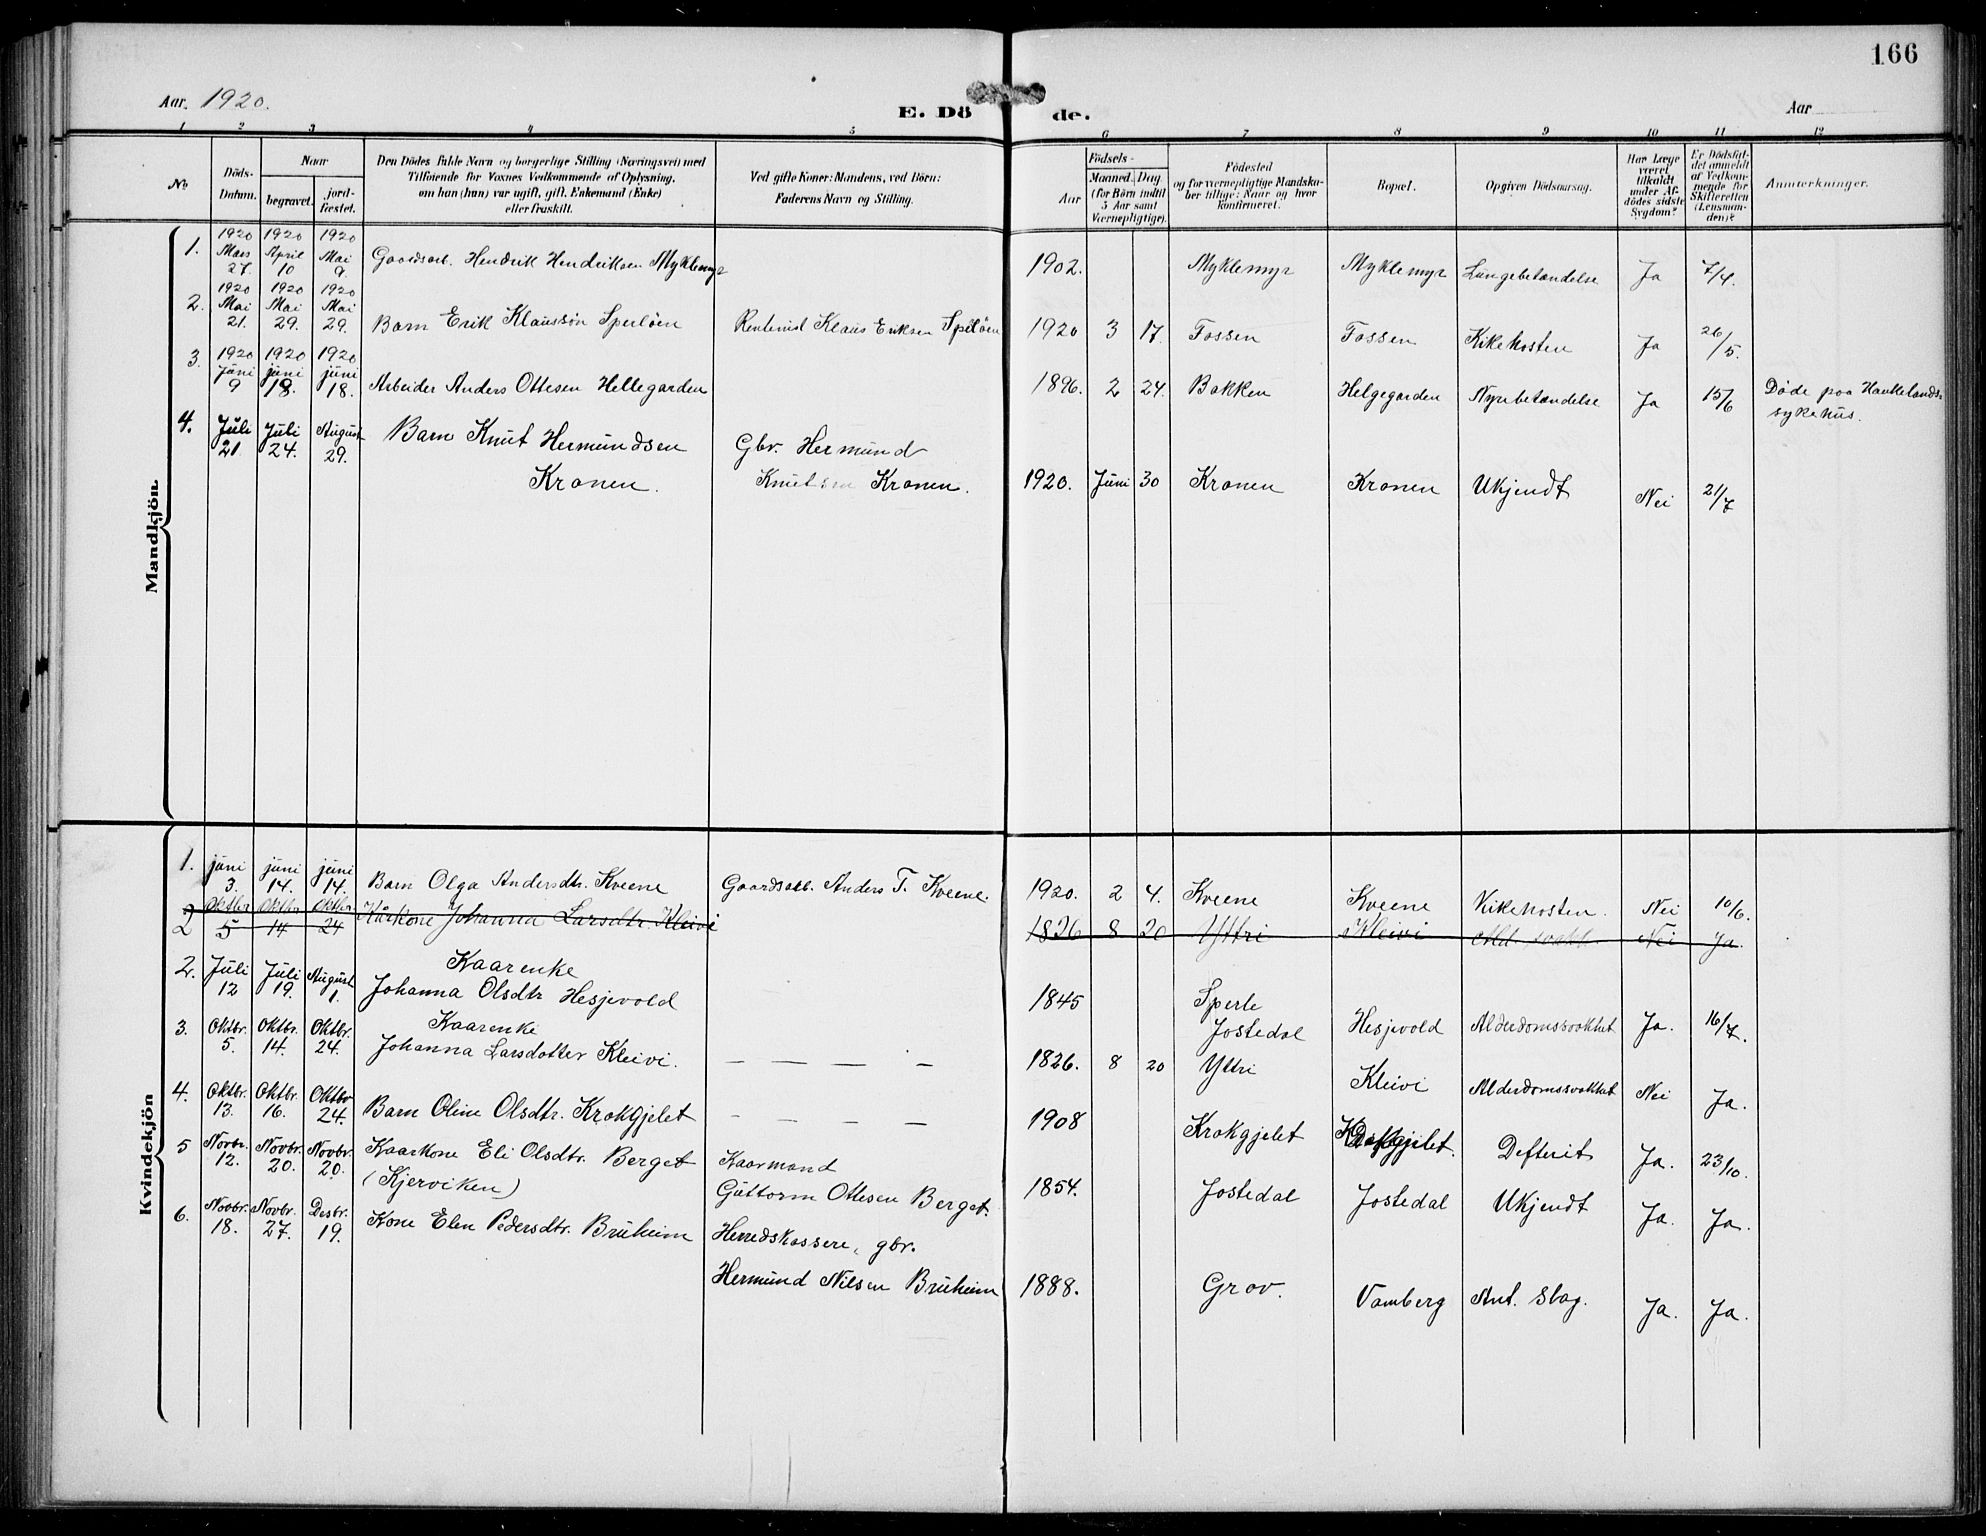 166
Aar. 1920.
E. Dö de.
Aar
1 2 3 4 5 6 7 8 9 10 11 12
No
Döds-Datum.
Naar
begravet.
jord-fæstet.
Den Dödes fulde Navn og borgerlige Stilling (Næringsvei) med
Tilföiende for Voxnes Vedkommende af Oplysning,
om han (hun) var ugift, gift, Enkemand (Enke)
eller fraskilt.
Ved gifte Koner: Mandens, ved Börn:
Faderens Navn og Stilling.
Födsels-
Aar
Maaned. Dag
(for Börn indtil
5 Aar samt
Værnepligtige).
Födested
og for værnepligtige Mandska-
ber tillige: Naar og hvor
konfirmeret.
Bopæl.
Opgiven Dödsaarsag.
Har Læge
været
tilkaldt
under Af-
dödes sidste
Sygdom?
Er Dödsfal-
det anmeldt
af Vedkom-
mende for
Skifteretten
(Lensman-
den)?
Anmærkninger.
Mandkjön.
1. 1920 Mars 27. 1920 April 10 1920 Mai 9. Gaardsarb. Hendrik Hendriksen Myklemyr 1902. Myklemyr Myklemyr Lungebetændelse Ja 7/4.
2. 1920 Mai 21. 1920 Mai 29. 1920 Mai 29. Barn Erik Klaussøn Sperløen Rentenist Klaus Eriksen Speløen 1920 3 17. Fossen Fossen Kikehosten Ja 26/5.
3. 1920 Juni 9 1920 juni 18. 1920 juni 18. Arbeider Anders Ottesen Hellegarden 1896. 2 24. Bakken Helgegarden Nyrebetændelse Ja 15/6 Døde paa Haukelands-
sykehus.
4. Juli 21. Juli 24. August 29. Barn Knut Hermundsen
Kronen. Gbr. Hermund
Knutsen Kronen. 1920. Juni 30 Kronen Kronen Ukjendt Nei 21/7
Kvindekjön
1. juni 3. juni 14. juni 14. Barn Olga Andersdtr. Kveene Gaardsarb. Anders T. Kveene. 1920. 2 4. Kveene Kveene Kikehosten. Nei 10/6.
2 Oktbr 5 Oktbr 14 Oktbr. 24 Kårkone Johanna Larsdtr. Kleivi 1826 8 20 Yttri Kleivi Ald. svakt. Nei Ja.
2. Juli 12 Juli 19. August 1. Kaarenke
Johanna Olsdtr Hesjevold 1845 Sperle
Jostedal Hesjevold Alderdomssvakhet Ja. 16/7.
3. Oktbr. 5. Oktbr. 14. Oktbr. 24. Kaarenke
Johanna Larsdotter Kleivi. — — — — 1826. 8 20 Yttri Kleivi Alderdomssvakhet Nei Ja.
4. Oktbr. 13. Oktbr. 16. Oktbr 24. Barn Oline Olsdtr. Krokgjelet — — — — 1908 Krokgjelet Krokgjelet. Defterit Ja. 23/10.
5 Novbr. 12. Novbr. 20. Novbr. 20. Kaarkone Eli Olsdtr. Berget
(Kjerviken) Kaarmand
Guttorm Ottesen Berget. 1854. Jostedal Jostedal Ukjendt Ja. Ja.
6. Novbr. 18. Novbr. 27. Desbr. 19. Kone Elen Pedersdtr. Bruheim Herredskassere, gbr.
Hermund Nilsen Bruheim 1888. Grov. Vamberg Ant. slag. Ja. Ja.